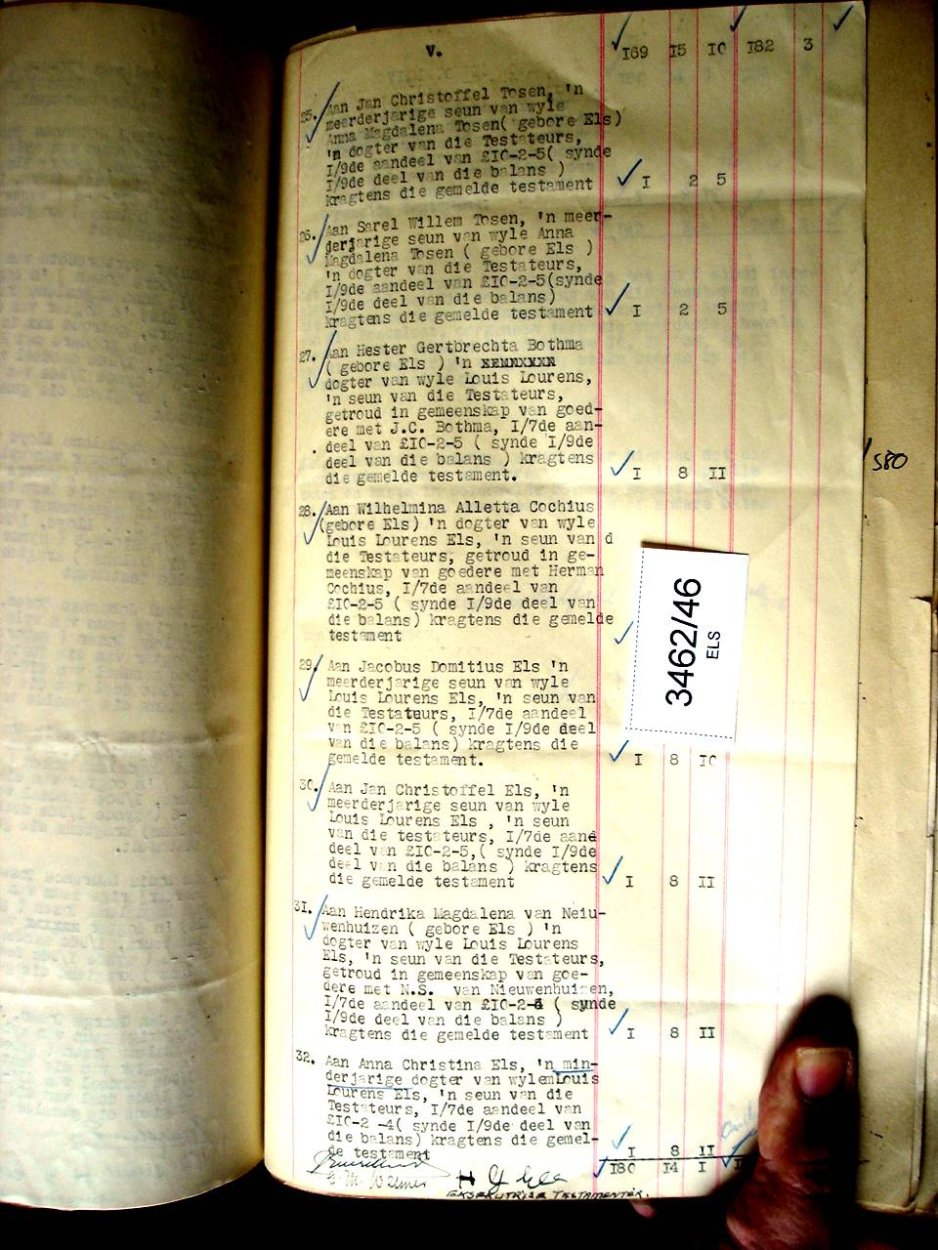 V.
169 15 10 182 3
25. Aan Jan Christoffel Tosen, 'n
meerderjarige seun van wyle
Anna Magdalena Tosen( gebore Els)
'n dogter van die Testateurs,
I/9de aandeel van £I0-2-5( synde
I/9de deel van die balans )
kragtens die gemelde testament I 2 5
26. Aan Sarel Willem Tosen, 'n meer-
derjarige seun van wyle Anna
Magdalena Tosen ( gebore Els )
'n dogter van die Testateurs,
I/9de aandeel van £I0-2-5(synde
I/9de deel van die balans)
kragtens die gemelde testament I 2 5
27. Aan Hester Gertbrechta Bothma
( gebore Els ) 'n
dogter van wyle Louis Lourens,
'n seun van die Testateurs,
getroud in gemeenskap van goed-
ere met J.C. Bothma, I/7de aan-
deel van £I0-2-5 ( synde I/9de
deel van die balans ) kragtens
die gemelde testament. I 8 II
580
28. Aan Wilhelmina Alletta Cochius
(gebore Els) 'n dogter van wyle
Louis Lourens Els, 'n seun van d
die Testateurs, getroud in ge-
meenskap van goedere met Herman
Cochius, I/7de aandeel van
£I0-2-5 ( synde I/9de deel van
die balans) kragtens die gemelde
testament
3462/46
ELS
29. Aan Jacobus Domitius Els 'n
meerderjarige seun van wyle
Louis Lourens Els, 'n seun van
die Testateurs, I/7de aandeel
van £I0-2-5 ( synde I/9de deel
van die balans) kragtens die
gemelde testament. I 8 I0
30. Aan Jan Christoffel Els, 'n
meerderjarige seun van wyle
Louis Lourens Els , 'n seun
van die testateurs, I/7de aand
deel van £I0-2-5,( synde I/9de
deel van die balans ) kragtens
die gemelde testament I 8 II
31. Aan Hendrika Magdalena van Neiu-
wenhuizen ( gebore Els ) 'n
dogter van wyle Louis Lourens
Els, 'n seun van die Testateurs,
getroud in gemeenskap van goe-
dere met N.S. van Nieuwenhuizen,
I/7de aandeel van £I0-2-4 ( synde
I/9de deel van die balans )
kragtens die gemelde testament I 8 II
32. Aan Anna Christina Els, 'n min-
derjarige dogter van wylemLouis
Lourens Els, 'n seun van die
Testateurs, I/7de aandeel van
£I0-2 -4( synde I/9de deel van
die balans) kragtens die gemel-
de testament I 8 II
180 I4 I
H J Els
EKSEKUTRISE TESTAMENTÊR.